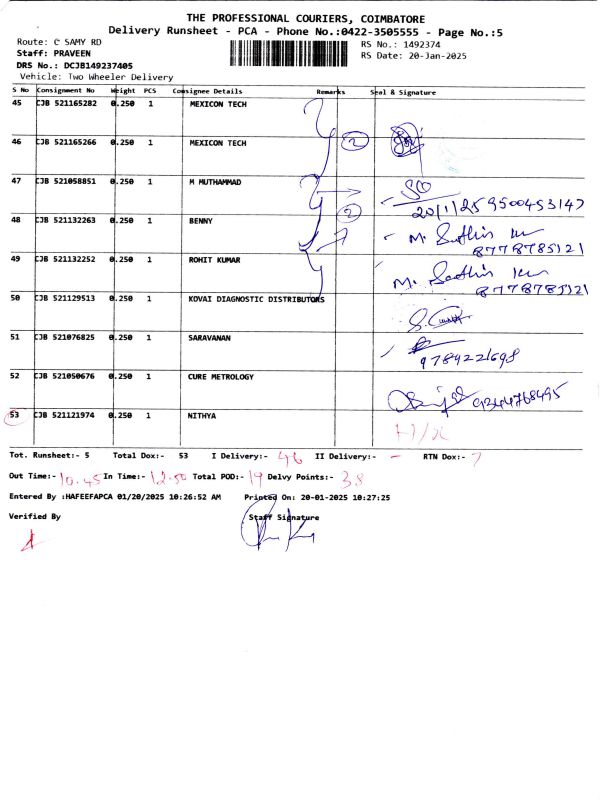 THE PROFESSIONAL COURIERS, COIMBATORE
Delivery Runsheet - PCA - Phone No.:0422-3505555 - Page No.:5
Route: C SAMY RD RS No.: 1492374
Staff: PRAVEEN RS Date: 20-Jan-2025
DRS No.: DCJB149237405
Vehicle: Two Wheeler Delivery
S No Consignment No Weight PCS Consignee Details Remarks Seal & Signature
45 CJB 521165282 0.250 1 MEXICON TECH
2
46 CJB 521165266 0.250 1 MEXICON TECH
47 CJB 521058851 0.250 1 M MUTHAMMAD
20/1/25 9500453147
2
48 CJB 521132263 0.250 1 BENNY
8778785121
49 CJB 521132252 0.250 1 ROHIT KUMAR
8778785121
50 CJB 521129513 0.250 1 KOVAI DIAGNOSTIC DISTRIBUTORS
51 CJB 521076825 0.250 1 SARAVANAN
9789221698
52 CJB 521050676 0.250 1 CURE METROLOGY
9344768495
53 CJB 521121974 0.250 1 NITHYA
Tot. Runsheet:- 5 Total Dox:- 53 I Delivery:- 46 II Delivery:- - RTN Dox:- 7
Out Time:- 10.45 In Time:- 12.50 Total POD:- 19 Delvy Points:- 38
Entered By :HAFEEFAPCA 01/20/2025 10:26:52 AM Printed On: 20-01-2025 10:27:25
Verified By Staff Signature